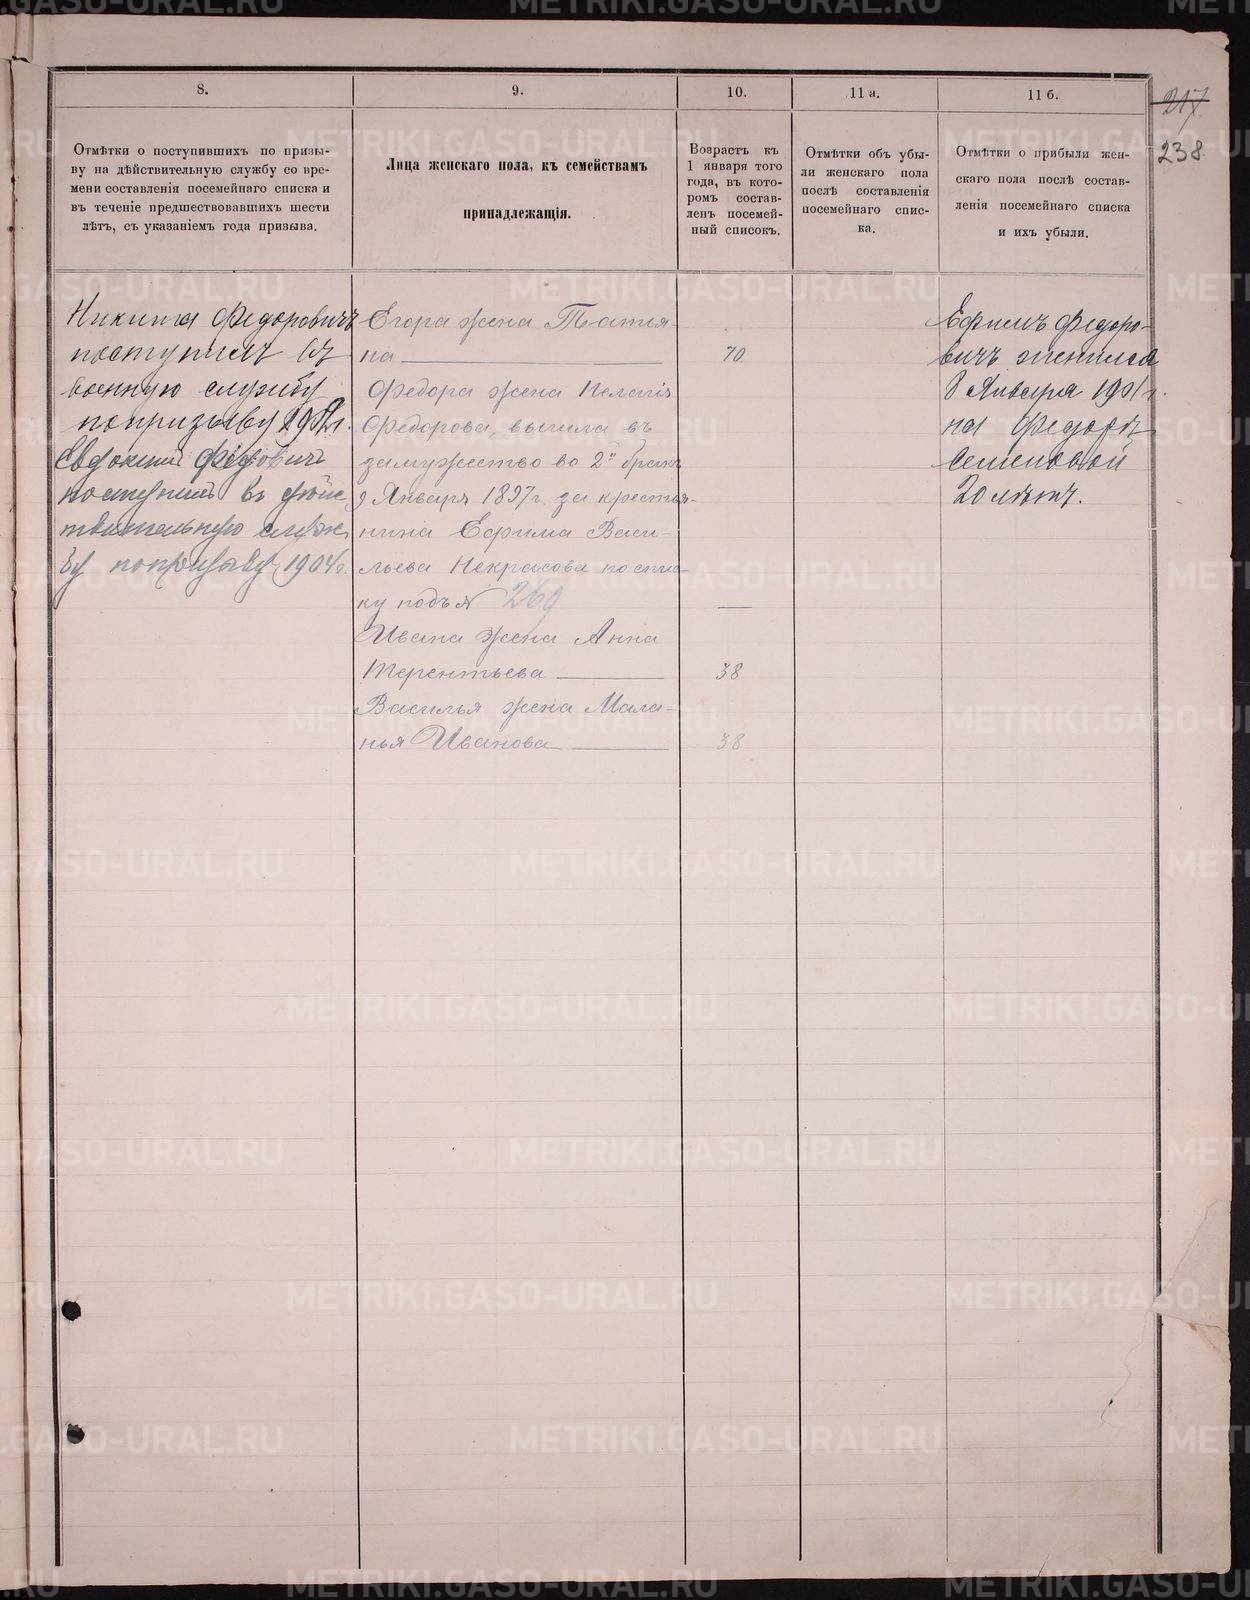 8.
9.
10.
11 а.
11 б.
217
238
Отмѣтки о поступившихъ по призы-
ву на дѣйствительную службу со вре-
мени составленія посемейнаго списка и
въ теченіе предшествовавшихъ шести
лѣтъ, съ указаніемъ года призыва.
Лица женскаго пола, къ семействамъ
принадлежащія.
Возрастъ къ
1 января того
года, въ кото-
ромъ состав-
ленъ посемей-
ный списокъ.
Отмѣтки объ убы-
ли женскаго пола
послѣ составленія
посемейнаго спис-
ка.
Отмѣтки о прибыли жен-
скаго пола послѣ состав-
ленія посемейнаго списка
и ихъ убыли.
Никита Федоровичъ
поступилъ въ
военную службу
по призыву 1902 г.
Евдокимъ Федоровичъ
поступилъ въ дѣйс
твительную служ
бу по призыву 1904 г.
Егора жена Татья-
на
70
Федора жена Пелагія
Федорова, вышла въ
замужество во 2й бракъ
9 Января 1897 г. за крестья-
нина Ефима Васи-
льева Некрасова по спис-
ку подъ № 269
Ивана жена Анна
Терентьева
38
Василья жена Мала-
нья Иванова
38
Ефимъ Федоро-
вичъ женился
8 Января 1901 г.
на Федорѣ
Семеновой
20 лѣтъ.
METRIKI.GASO-URAL.RU